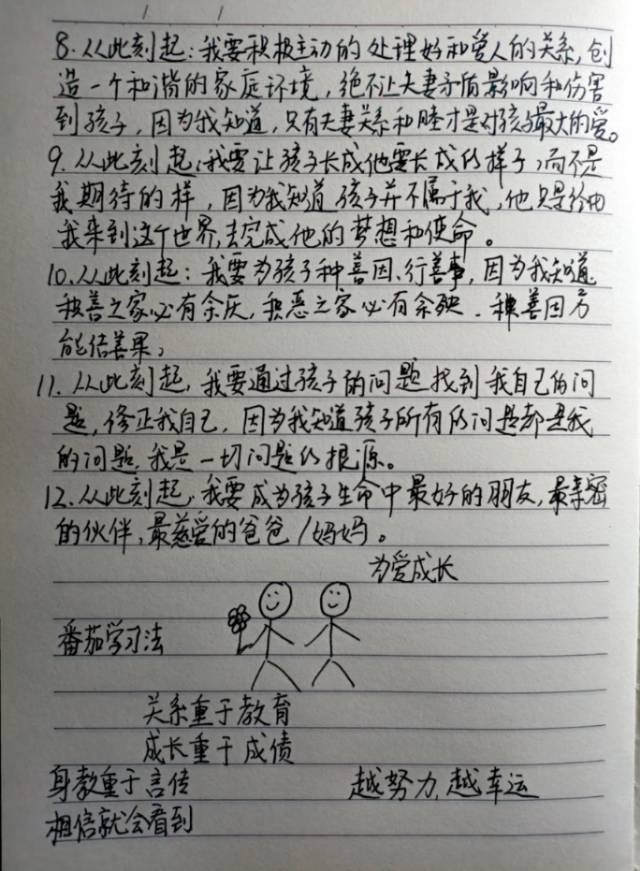 8. 从此刻起：我要积极主动的处理好和爱人的关系，创
造一个和谐的家庭环境，绝不让夫妻矛盾影响和伤害
到孩子，因为我知道，只有夫妻关系和睦才是对孩子最大的爱。
9. 从此刻起：我要让孩子长成他要长成的样子，而不是
我期待的样，因为我知道孩子并不属于我，他只是经由
我来到这个世界，去完成他的梦想和使命。
10. 从此刻起：我要为孩子种善因、行善事，因为我知道
积善之家必有余庆，积恶之家必有余殃．种善因方
能结善果；
11. 从此刻起，我要通过孩子的问题找到我自己的问
题，修正我自己，因为我知道孩子所有的问题都是我
的问题，我是一切问题的根源。
12. 从此刻起，我要成为孩子生命中最好的朋友，最亲密
的伙伴，最慈爱的爸爸/妈妈。
为爱成长
番茄学习法
关系重于教育
成长重于成绩
身教重于言传 越努力，越幸运
相信就会看到